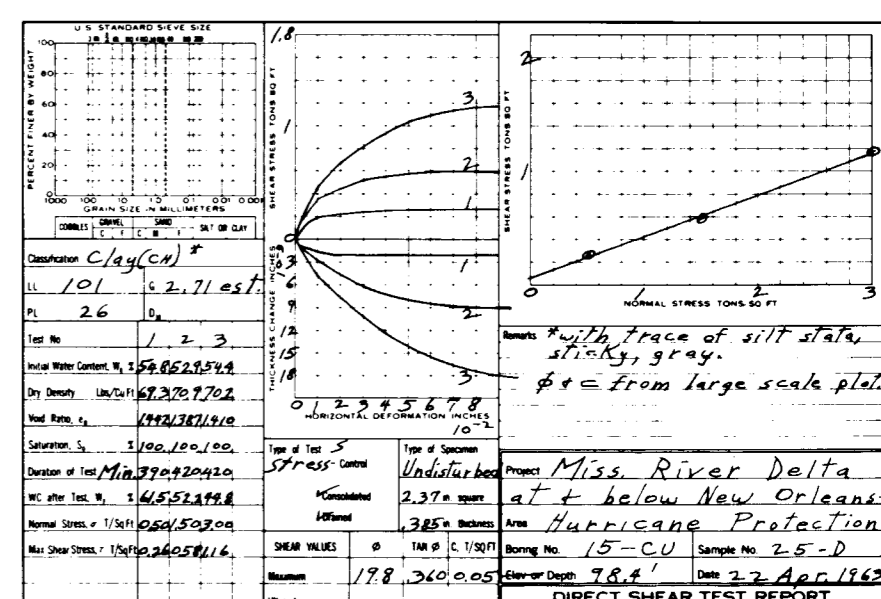 U S STANDARD SIEVE SIZE
PERCENT FINER BY WEIGHT
100
80
60
40
20
0
1000 100 10 1.0 0.1 0.01 0.001
GRAIN SIZE IN MILLIMETERS
COBBLES GRAVEL SAND SILT OR CLAY
C F C M F
Classification Clay (CH) *
LL 101 G 2.71 est.
PL 26 D
Test No 1 2 3
Initial Water Content, W₀ % 54.8 52.9 54.4
Dry Density Lbs/Cu Ft 69.3 70.9 70.2
Void Ratio, e₀ 1.442 1.387 1.410
Saturation, S₀ % 100. 100. 100.
Duration of Test Min. 390 420 420
WC after Test, W₁ % 61.5 52.2 49.8
Normal Stress, σ T/Sq Ft 0.50 1.50 3.00
Max Shear Stress, τ T/Sq Ft 0.26 0.58 1.16
1.8
1
0
SHEAR STRESS TONS SQ FT
3
2
1
THICKNESS CHANGE INCHES
3
6
9
12
15
18
1
2
3
0 1 2 3 4 5 6 7 8
HORIZONTAL DEFORMATION INCHES
10⁻²
Type of Test S
Stress- Control
Consolidated
Drained
Type of Specimen
Undisturbed
2.37 in square
.385 in thickness
SHEAR VALUES φ TAN φ C, T/SQ FT
Maximum 19.8 .360 0.05
SHEAR STRESS TONS SQ FT
2
1
0 1 2 3
NORMAL STRESS TONS SQ FT
Remarks *with trace of silt stata,
sticky, gray.
φ & c from large scale plot.
Project Miss. River Delta
at & below New Orleans-
Area Hurricane Protection
Boring No. 15-CU Sample No. 25-D
Elev or Depth 98.4' Date 22 Apr. 1963
DIRECT SHEAR TEST REPORT